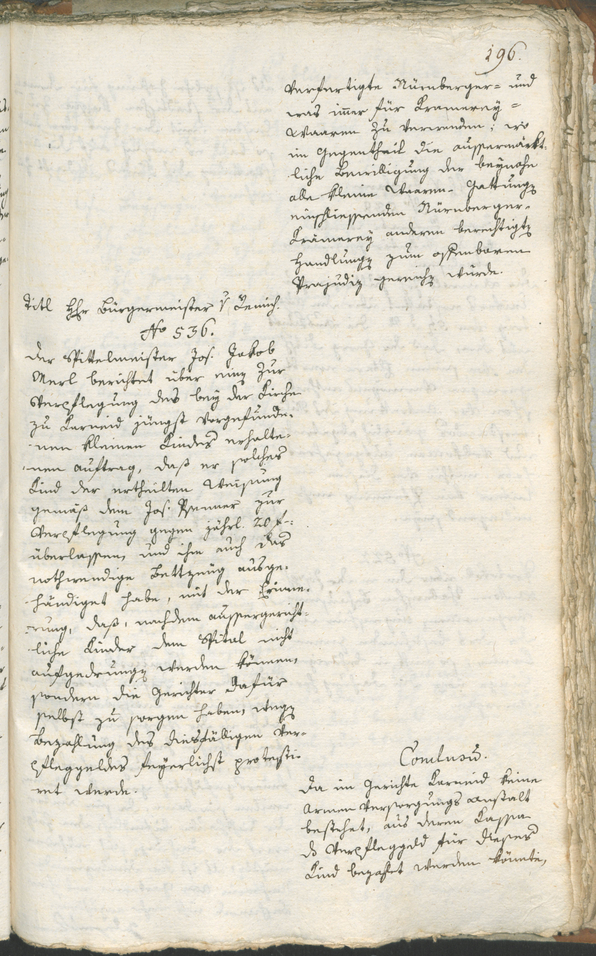 196.
verfertigte Nürnberger- und
was imer für Kramerey-
Waaren zu verwenden; wo
im Gegentheil die aussermärkt-
liche Bewilligung der beynahe
alle kleine Waaren-Gattungen
einschliessenden Nürnberger-
Krämerey anderen berechtigten
Handlungen zum offenbaren
Prajudiz gereichen würde.
Titl Hr Bürgermeister v
No 536.
Der Spittelmeister Jos. Jakob
Merl berichtet über einen zur
Verpflegung des bey der Kirche
zu Karneid jüngst vorgefunde-
nen kleinen Kindes erhalte-
nen Auftrag, daß er solches
Kind der ertheilten Weisung
gemäß dem Jos. Penner zur
Verpflegung gegen jährl. 20 f:
überlassen, und ihm auch das
nothwendige Bettzeug ausge-
händiget habe, mit der Erinne-
rung, daß, nachdem aussergericht-
liche Kinder dem Spital nicht
aufgedrungen werden können,
sondern die Gerichter dafür
selbst zu sorgen haben, wegen
Bezahlung des diesfälligen Ver-
pfleggeldes feyerlichst protesti-
ret werde.
Conclusum.
Da im Gerichte Karneid keine
Armen Versorgungs Anstalt
bestehet, aus deren Cassa
das Verpfleggeld für dieses
Kind bezahlt werden könnte,